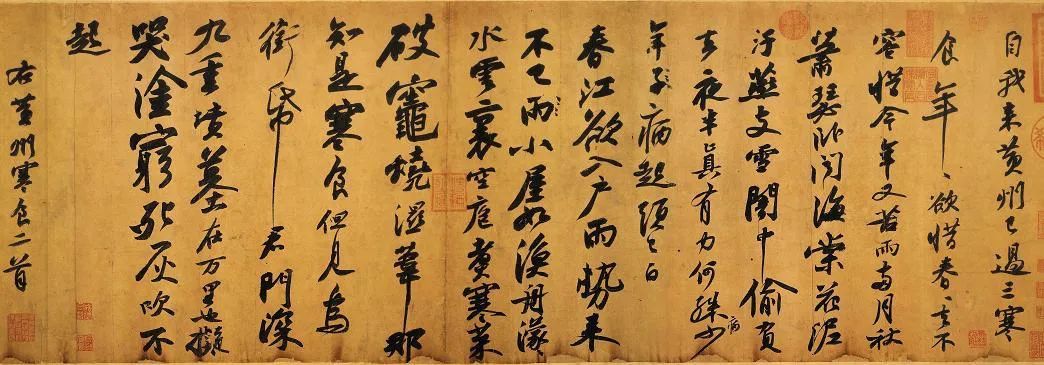 自我來黃州已過三寒
食年〻欲惜春〻去不
容惜今年又苦雨兩月秋
蕭瑟臥聞海棠花泥
汙燕支雪闇中偷負
去夜半真有力何殊病少
年子病起頭已白
春江欲入戶雨勢來
不已雨小屋如漁舟濛〻
水雲裏空庖煑寒菜
破竈燒濕葦那
知是寒食但見烏
銜帋君門深
九重墳墓在万里也擬
哭塗窮死灰吹不
起
右黃州寒食二首